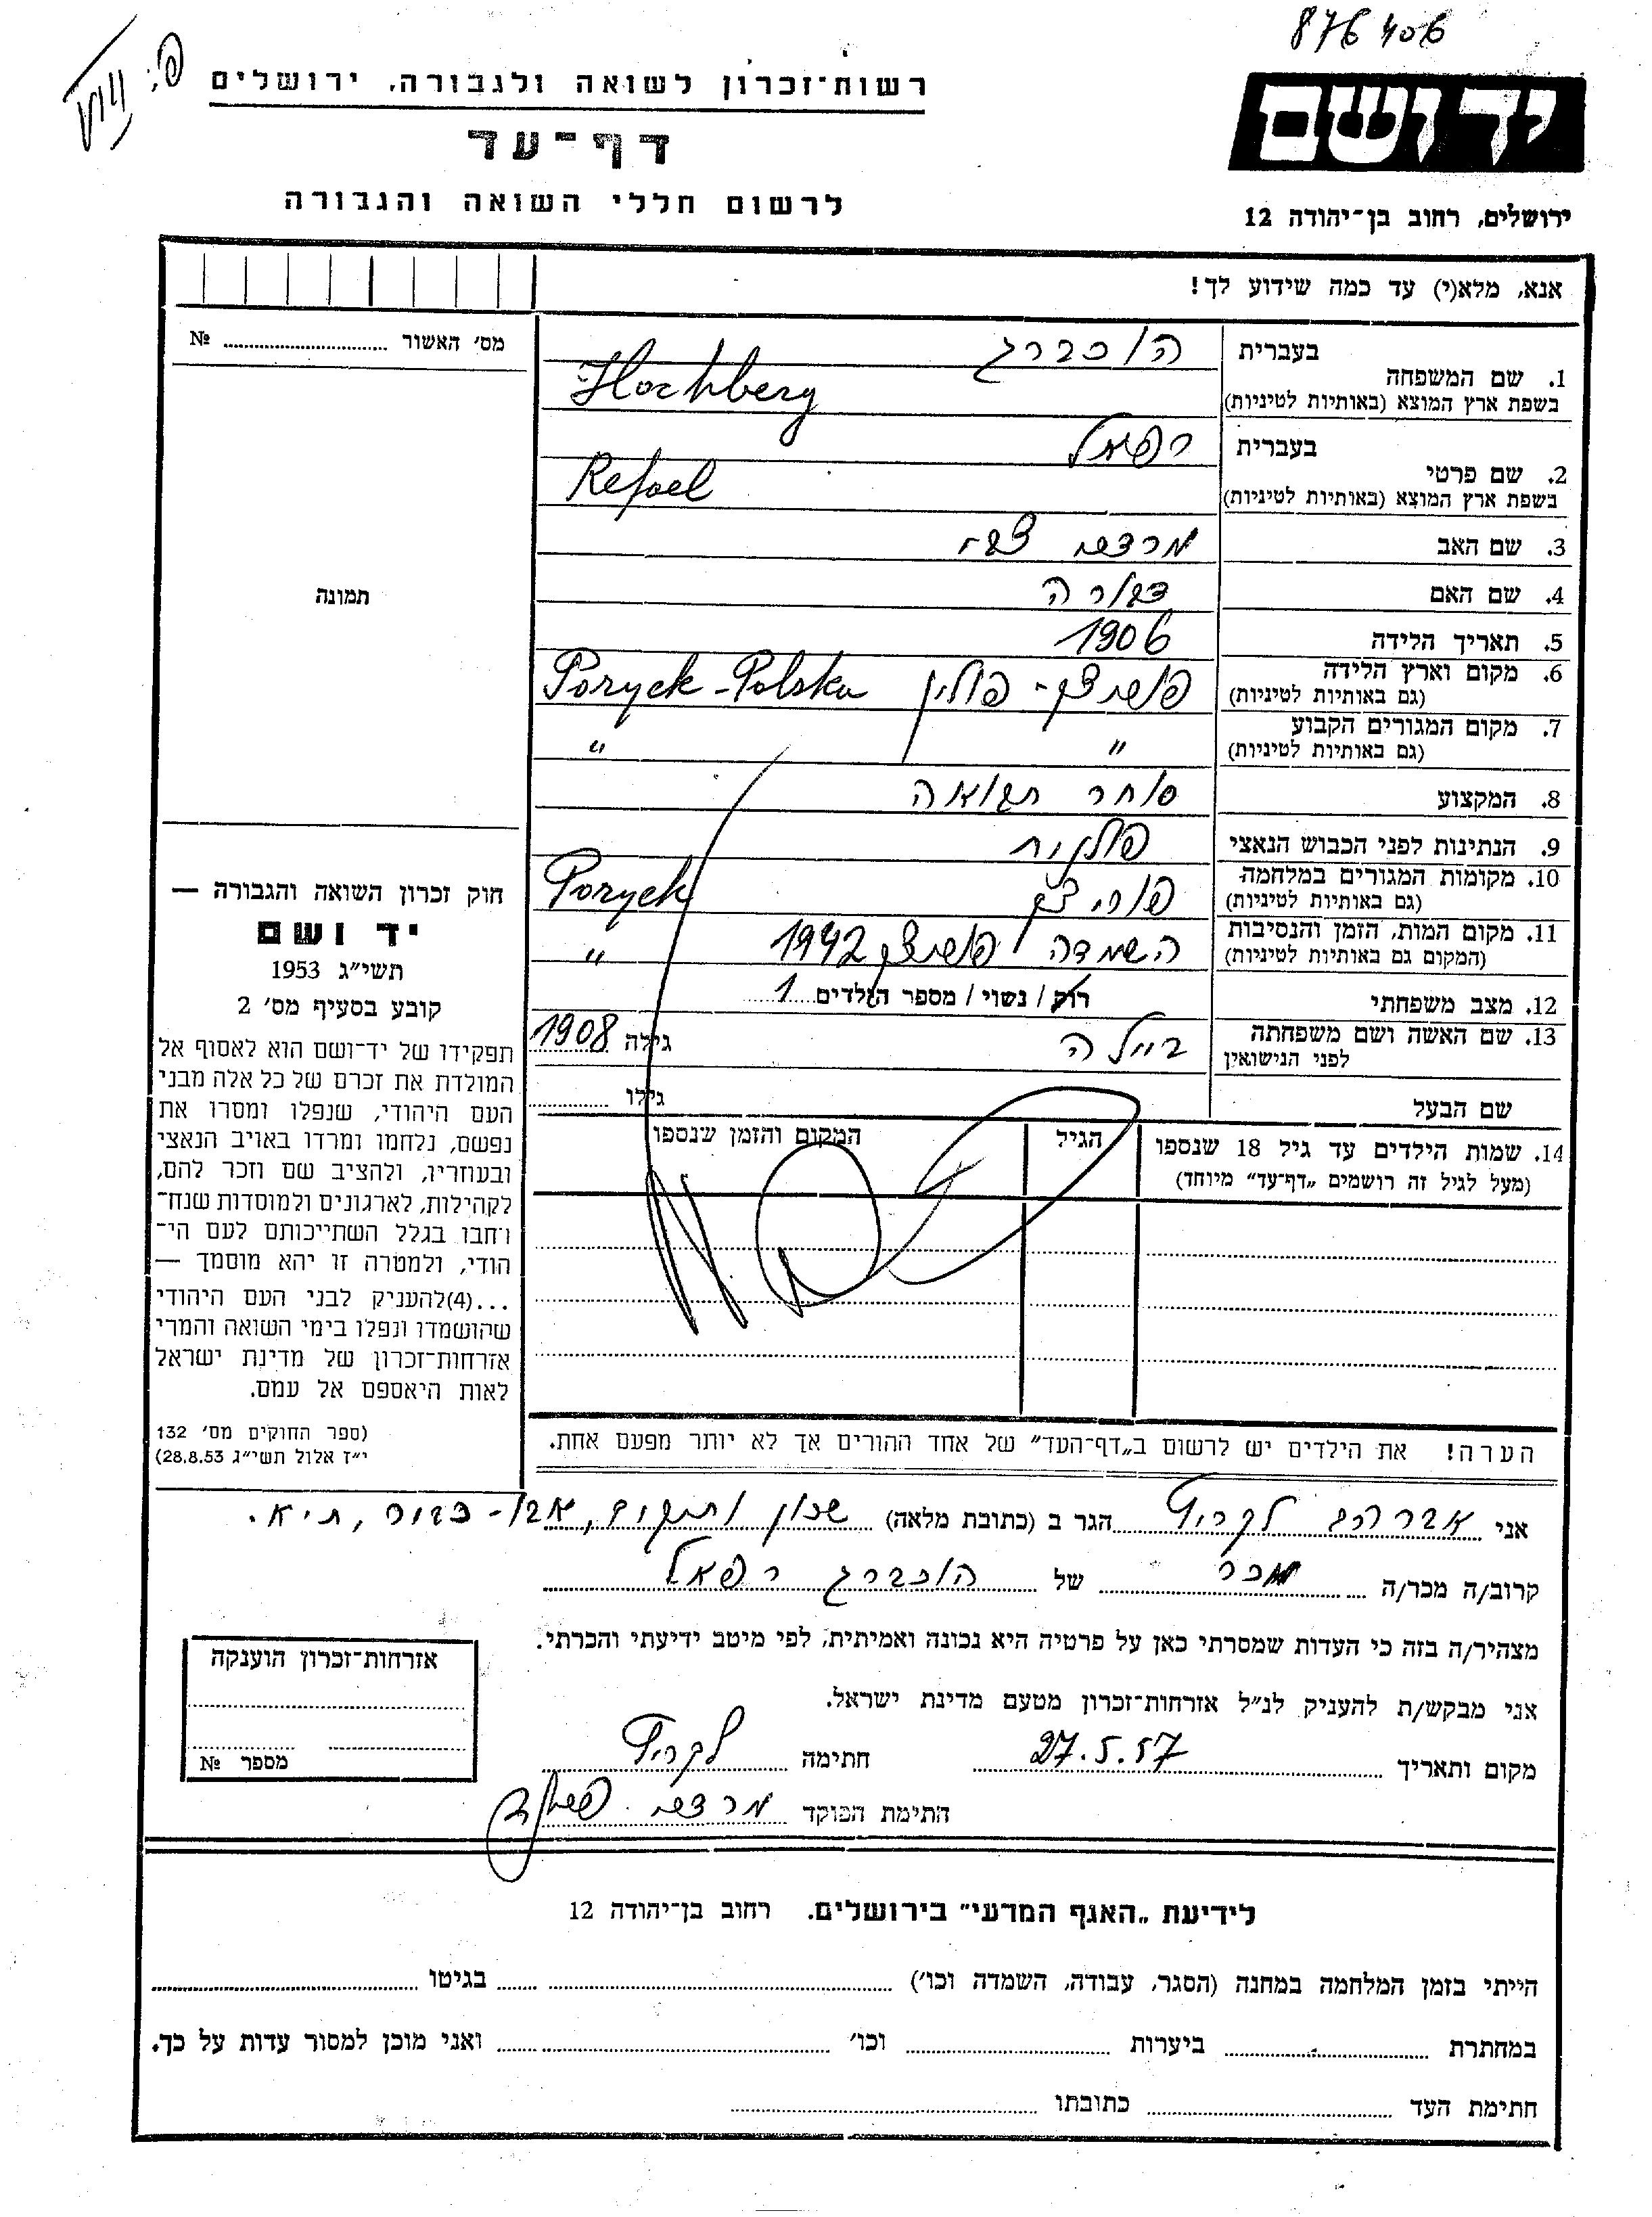 876406
רשות־זכרון לשואה ולגבורה, ירושלים
דף־עד
לרשום חללי השואה והגבורה
יד ושם
ירושלים, רחוב בן־יהודה 12
אנא, מלא(י) עד כמה שידוע לך!
מס׳ האשור № 
תמונה
1. שם המשפחה בעברית הוכברג
בשפת ארץ המוצא (באותיות לטיניות) Hochberg
2. שם פרטי בעברית רפאל
בשפת ארץ המוצא (באותיות לטיניות) Refael
3. שם האב מרדכי צבי
4. שם האם
5. תאריך הלידה 1906
6. מקום וארץ הלידה פוריצק - פולין Poryck - Polska
(גם באותיות לטיניות)
7. מקום המגורים הקבוע " "
(גם באותיות לטיניות)
8. המקצוע סוחר תבואה
9. הנתינות לפני הכבוש הנאצי פולנית
10. מקומות המגורים במלחמה פוריצק Poryck
(גם באותיות לטיניות)
11. מקום המות, הזמן והנסיבות השמדה פוריצק 1942 "
(המקום גם באותיות לטיניות)
12. מצב משפחתי רוק / נשוי / מספר הילדים 1
13. שם האשה ושם משפחתה ביילה גילה 1908
לפני הנישואין
שם הבעל גילו
14. שמות הילדים עד גיל 18 שנספו הגיל המקום והזמן שנספו
(מעל לגיל זה רושמים „דף־עד” מיוחד)
הערה! את הילדים יש לרשום ב„דף־העד” של אחד ההורים אך לא יותר מפעם אחת.
חוק זכרון השואה והגבורה —
יד ושם
תשי״ג 1953
קובע בסעיף מס׳ 2
תפקידו של יד־ושם הוא לאסוף אל
המולדת את זכרם של כל אלה מבני
העם היהודי, שנפלו ומסרו את
נפשם, נלחמו ומרדו באויב הנאצי
ובעוזריו, ולהציב שם וזכר להם,
לקהילות, לארגונים ולמוסדות שנח־
רחבו בגלל השתייכותם לעם הי־
הודי, ולמטרה זו יהא מוסמך —
...(4)להעניק לבני העם היהודי
שהושמדו ונפלו בימי השואה והמרי
אזרחות־זכרון של מדינת ישראל
לאות היאספם אל עמם.
(ספר החוקים מס׳ 132
י״ז אלול תשי״ג 28.8.53)
אני אברהם הגר ב (כתובת מלאה) שכון ותיקים, אבו-כביר, ת״א.
קרוב/ה מכר/ה מכר של הוכברג רפאל
מצהיר/ה בזה כי העדות שמסרתי כאן על פרטיה היא נכונה ואמיתית, לפי מיטב ידיעתי והכרתי.
אני מבקש/ת להעניק לנ״ל אזרחות־זכרון מטעם מדינת ישראל.
מקום ותאריך 27.5.57 חתימה
חתימת הפוקד מרדכי
אזרחות־זכרון הוענקה
מספר №
לידיעת „האגף המדעי” בירושלים. רחוב בן־יהודה 12
הייתי בזמן המלחמה במחנה (הסגר, עבודה, השמדה וכו׳) בגיטו
במחתרת ביערות וכו׳ ואני מוכן למסור עדות על כך.
חתימת העד כתובתו